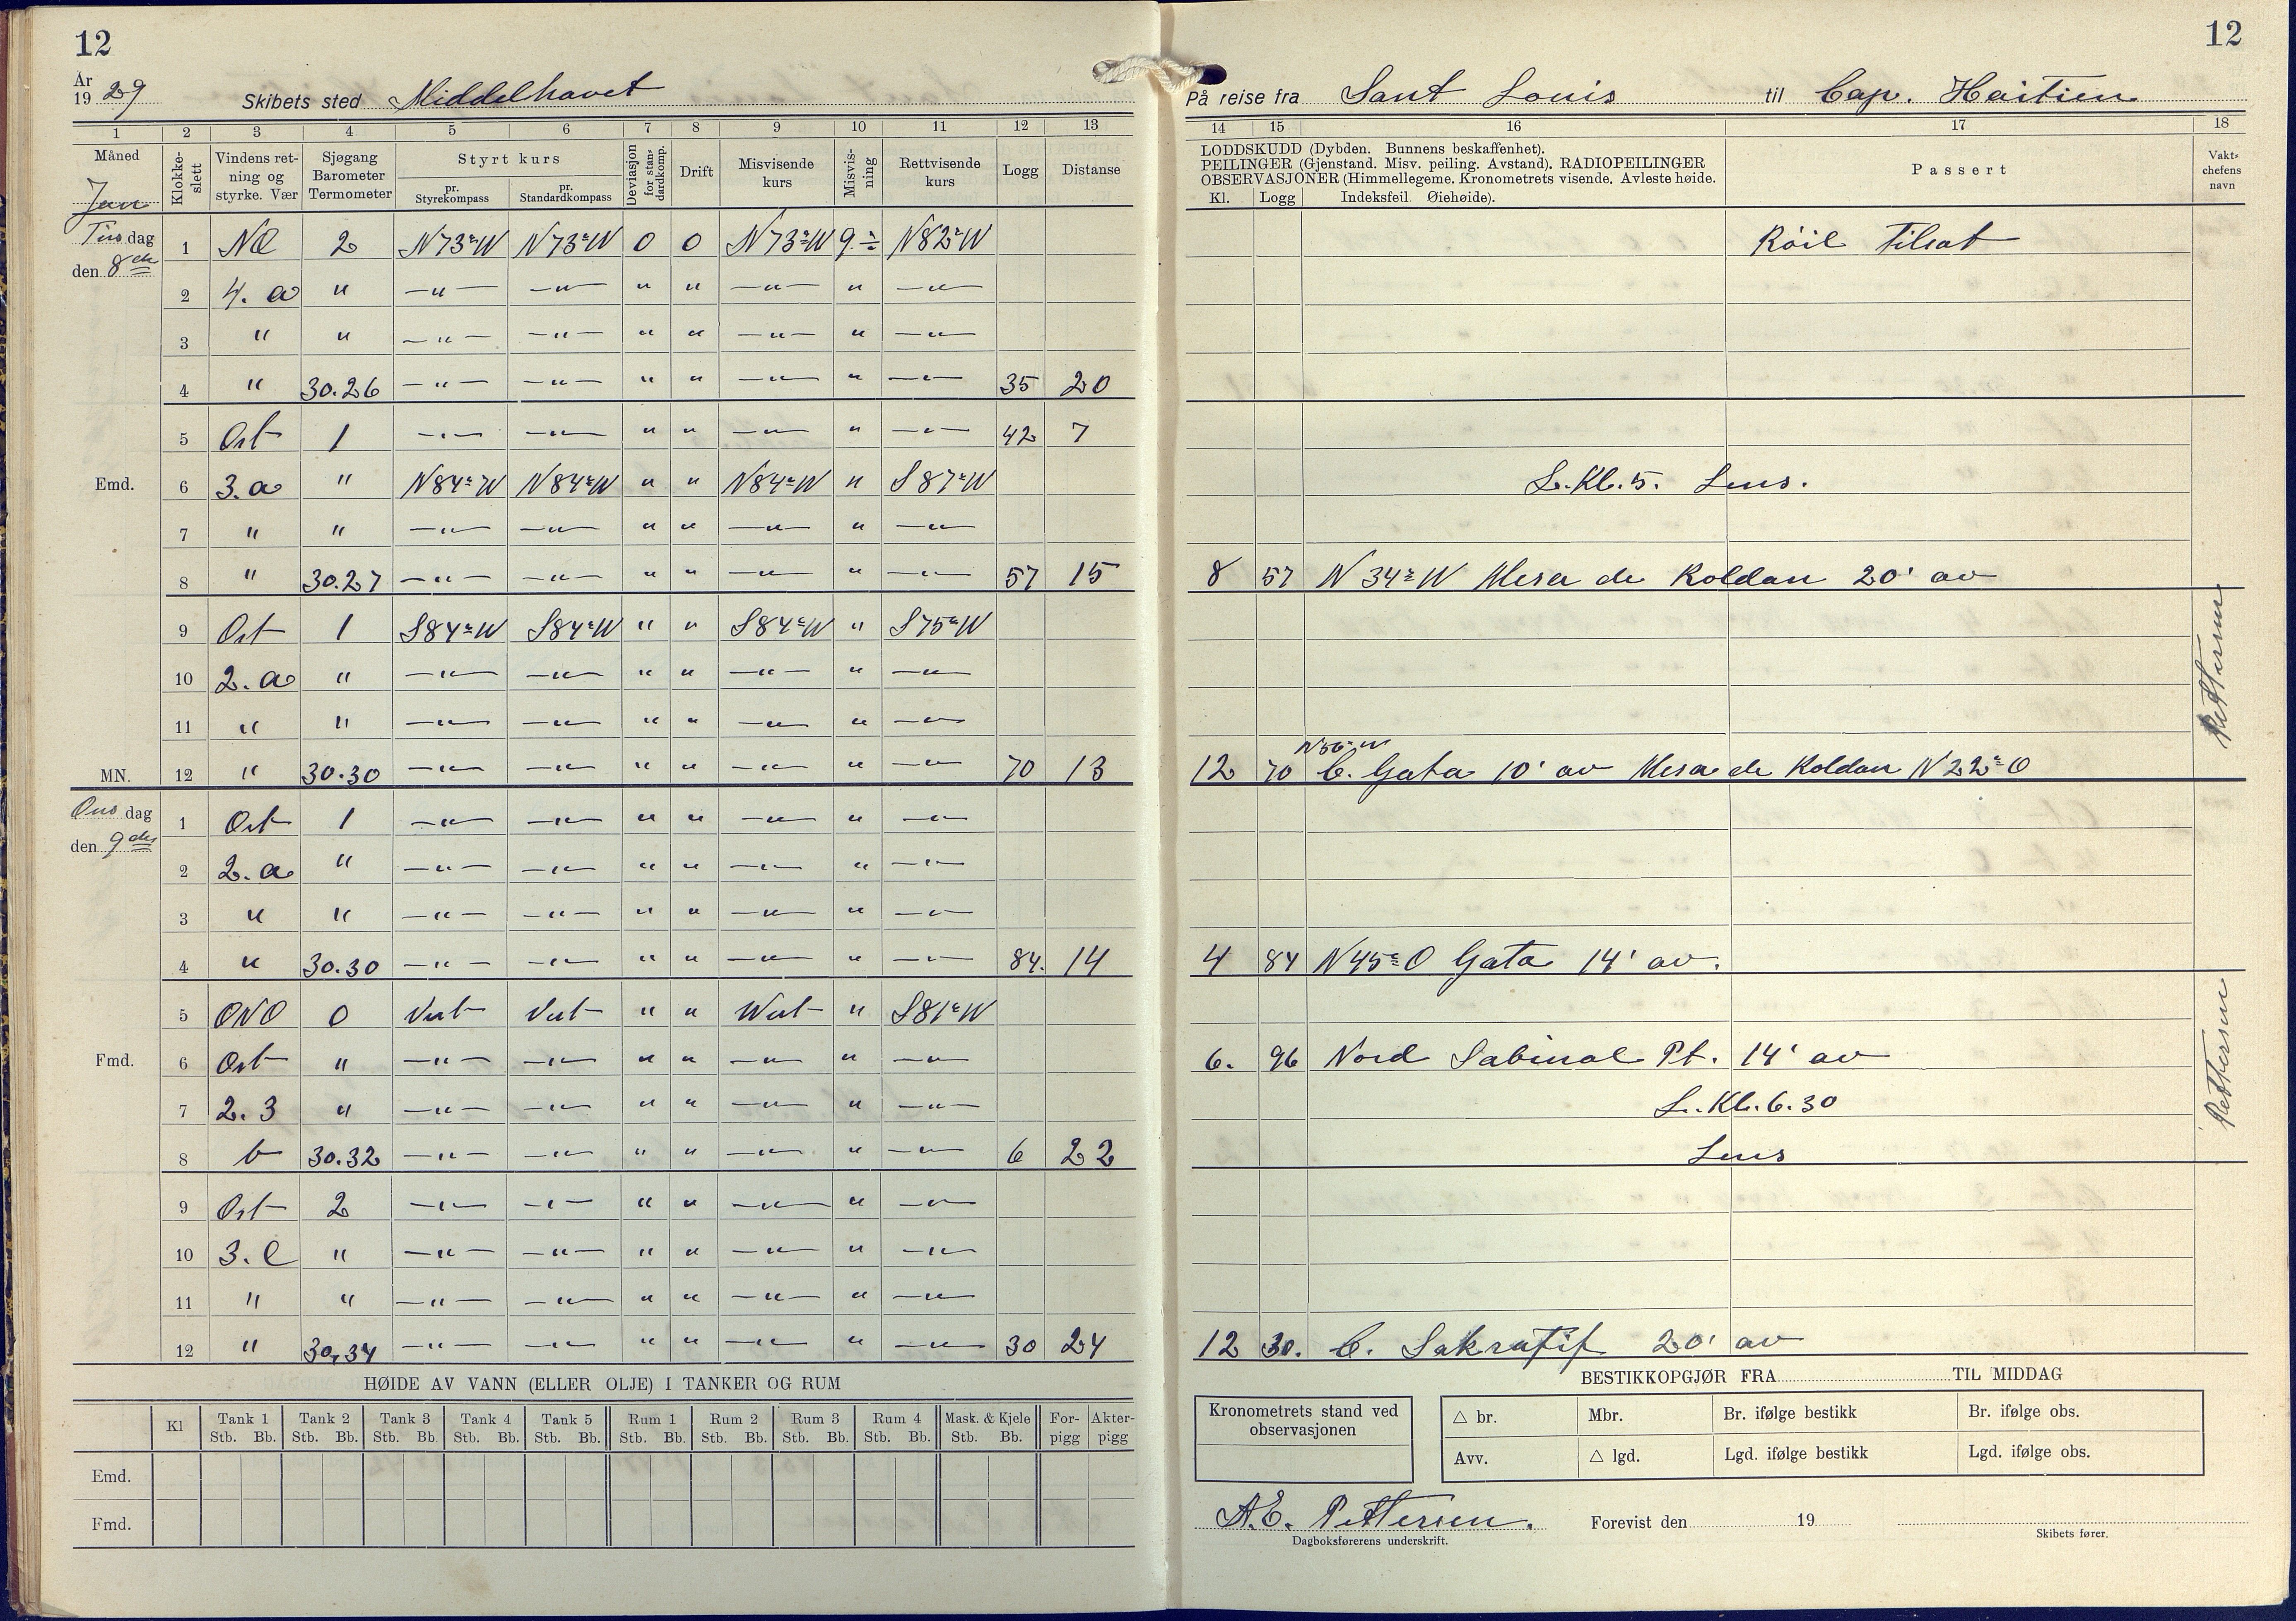 12
År
1929 Skibets sted Middelhavet
1 2 3 4 5 6 7 8 9 10 11 12 13
Måned Klokke-slett Vindens ret-ning og styrke. Vær Sjøgang Barometer Termometer Styrt kurs Deviasjon for stan-dardkomp. Drift Misvisende kurs Misvis-ning Rettvisende kurs Logg Distanse
pr. Styrekompass pr. Standardkompass
Jan
Tirsdag 1 NO 2 N73°W N73°W 0 0 N73°W 9 ÷ N82°W
den 8de
2 4. a " —"— —"— " " —"— " —"—
3 " " —"— —"— " " —"— " —"—
4 " 30.26 —"— —"— " " —"— " —"— 35 20
5 Ost 1 —"— —"— " " —"— " —"— 42 7
Emd. 6 3. a " N84°W N84°W " " N84°W " S87°W
7 " " —"— —"— " " —"— " —"—
8 " 30.27 —"— —"— " " —"— " —"— 57 15
9 Ost 1 S84°W S84°W " " S84°W " S75°W
10 2. a " —"— —"— " " —"— " —"—
11 " " —"— —"— " " —"— " —"—
MN. 12 " 30.30 —"— —"— " " —"— " —"— 70 13
Onsdag 1 Ost 1 —"— —"— " " —"— " —"—
den 9de
2 2. a " —"— —"— " " —"— " —"—
3 " " —"— —"— " " —"— " —"—
4 " 30.30 —"— —"— " " —"— " —"— 84. 14
5 ONO 0 Vest Vest " " West " S81°W
Fmd. 6 Ost " —"— —"— " " —"— " —"—
7 2. 3 " —"— —"— " " —"— " —"—
8 b 30.32 —"— —"— " " —"— " —"— 6 22
9 Ost 2 —"— —"— " " —"— " —"—
10 3. " —"— —"— " " —"— " —"—
11 " " —"— —"— " " —"— " —"—
12 " 30,34 —"— —"— " " —"— " —"— 30 24
HØIDE AV VANN (ELLER OLJE) I TANKER OG RUM
Kl Tank 1 Tank 2 Tank 3 Tank 4 Tank 5 Rum 1 Rum 2 Rum 3 Rum 4 Mask. & Kjele For-pigg Akter-pigg
Stb. Bb. Stb. Bb. Stb. Bb. Stb. Bb. Stb. Bb. Stb. Bb. Stb. Bb. Stb. Bb. Stb. Bb. Stb. Bb.
Emd.
Fmd.
12
På reise fra Sant Louis til Cap. Haitien
14 15 16 17 18
LODDSKUDD (Dybden. Bunnens beskaffenhet).
PEILINGER (Gjenstand. Misv. peiling. Avstand). RADIOPEILINGER
OBSERVASJONER (Himmellegeme. Kronometrets visende. Avleste høide.
Kl. Logg Indeksfeil Øiehøide).
Passert
Vakt-chefens navn
Røil Tilsat
L. Kl. 5. Lens.
8 57 N 34° W Mesa de Roldan 20' av
Pettersen
N56°W
12 70 C. Gata 10' av Mesa de Roldan N22°O
4 84 N45°O Gata 14' av.
6. 96 Nord Sabinal Pt. 14' av
L. Kl. 6.30
Lens
Pettersen
12 30. C. Sakratif 20' av
BESTIKKOPGJØR FRA TIL MIDDAG
Kronometrets stand ved observasjonen
△ br. Mbr. Br. ifølge bestikk Br. ifølge obs.
Avv. △ lgd. Lgd. ifølge bestikk Lgd. ifølge obs.
A.E. Pettersen.
Dagboksførerens underskrift.
Forevist den 19
Skibets fører.